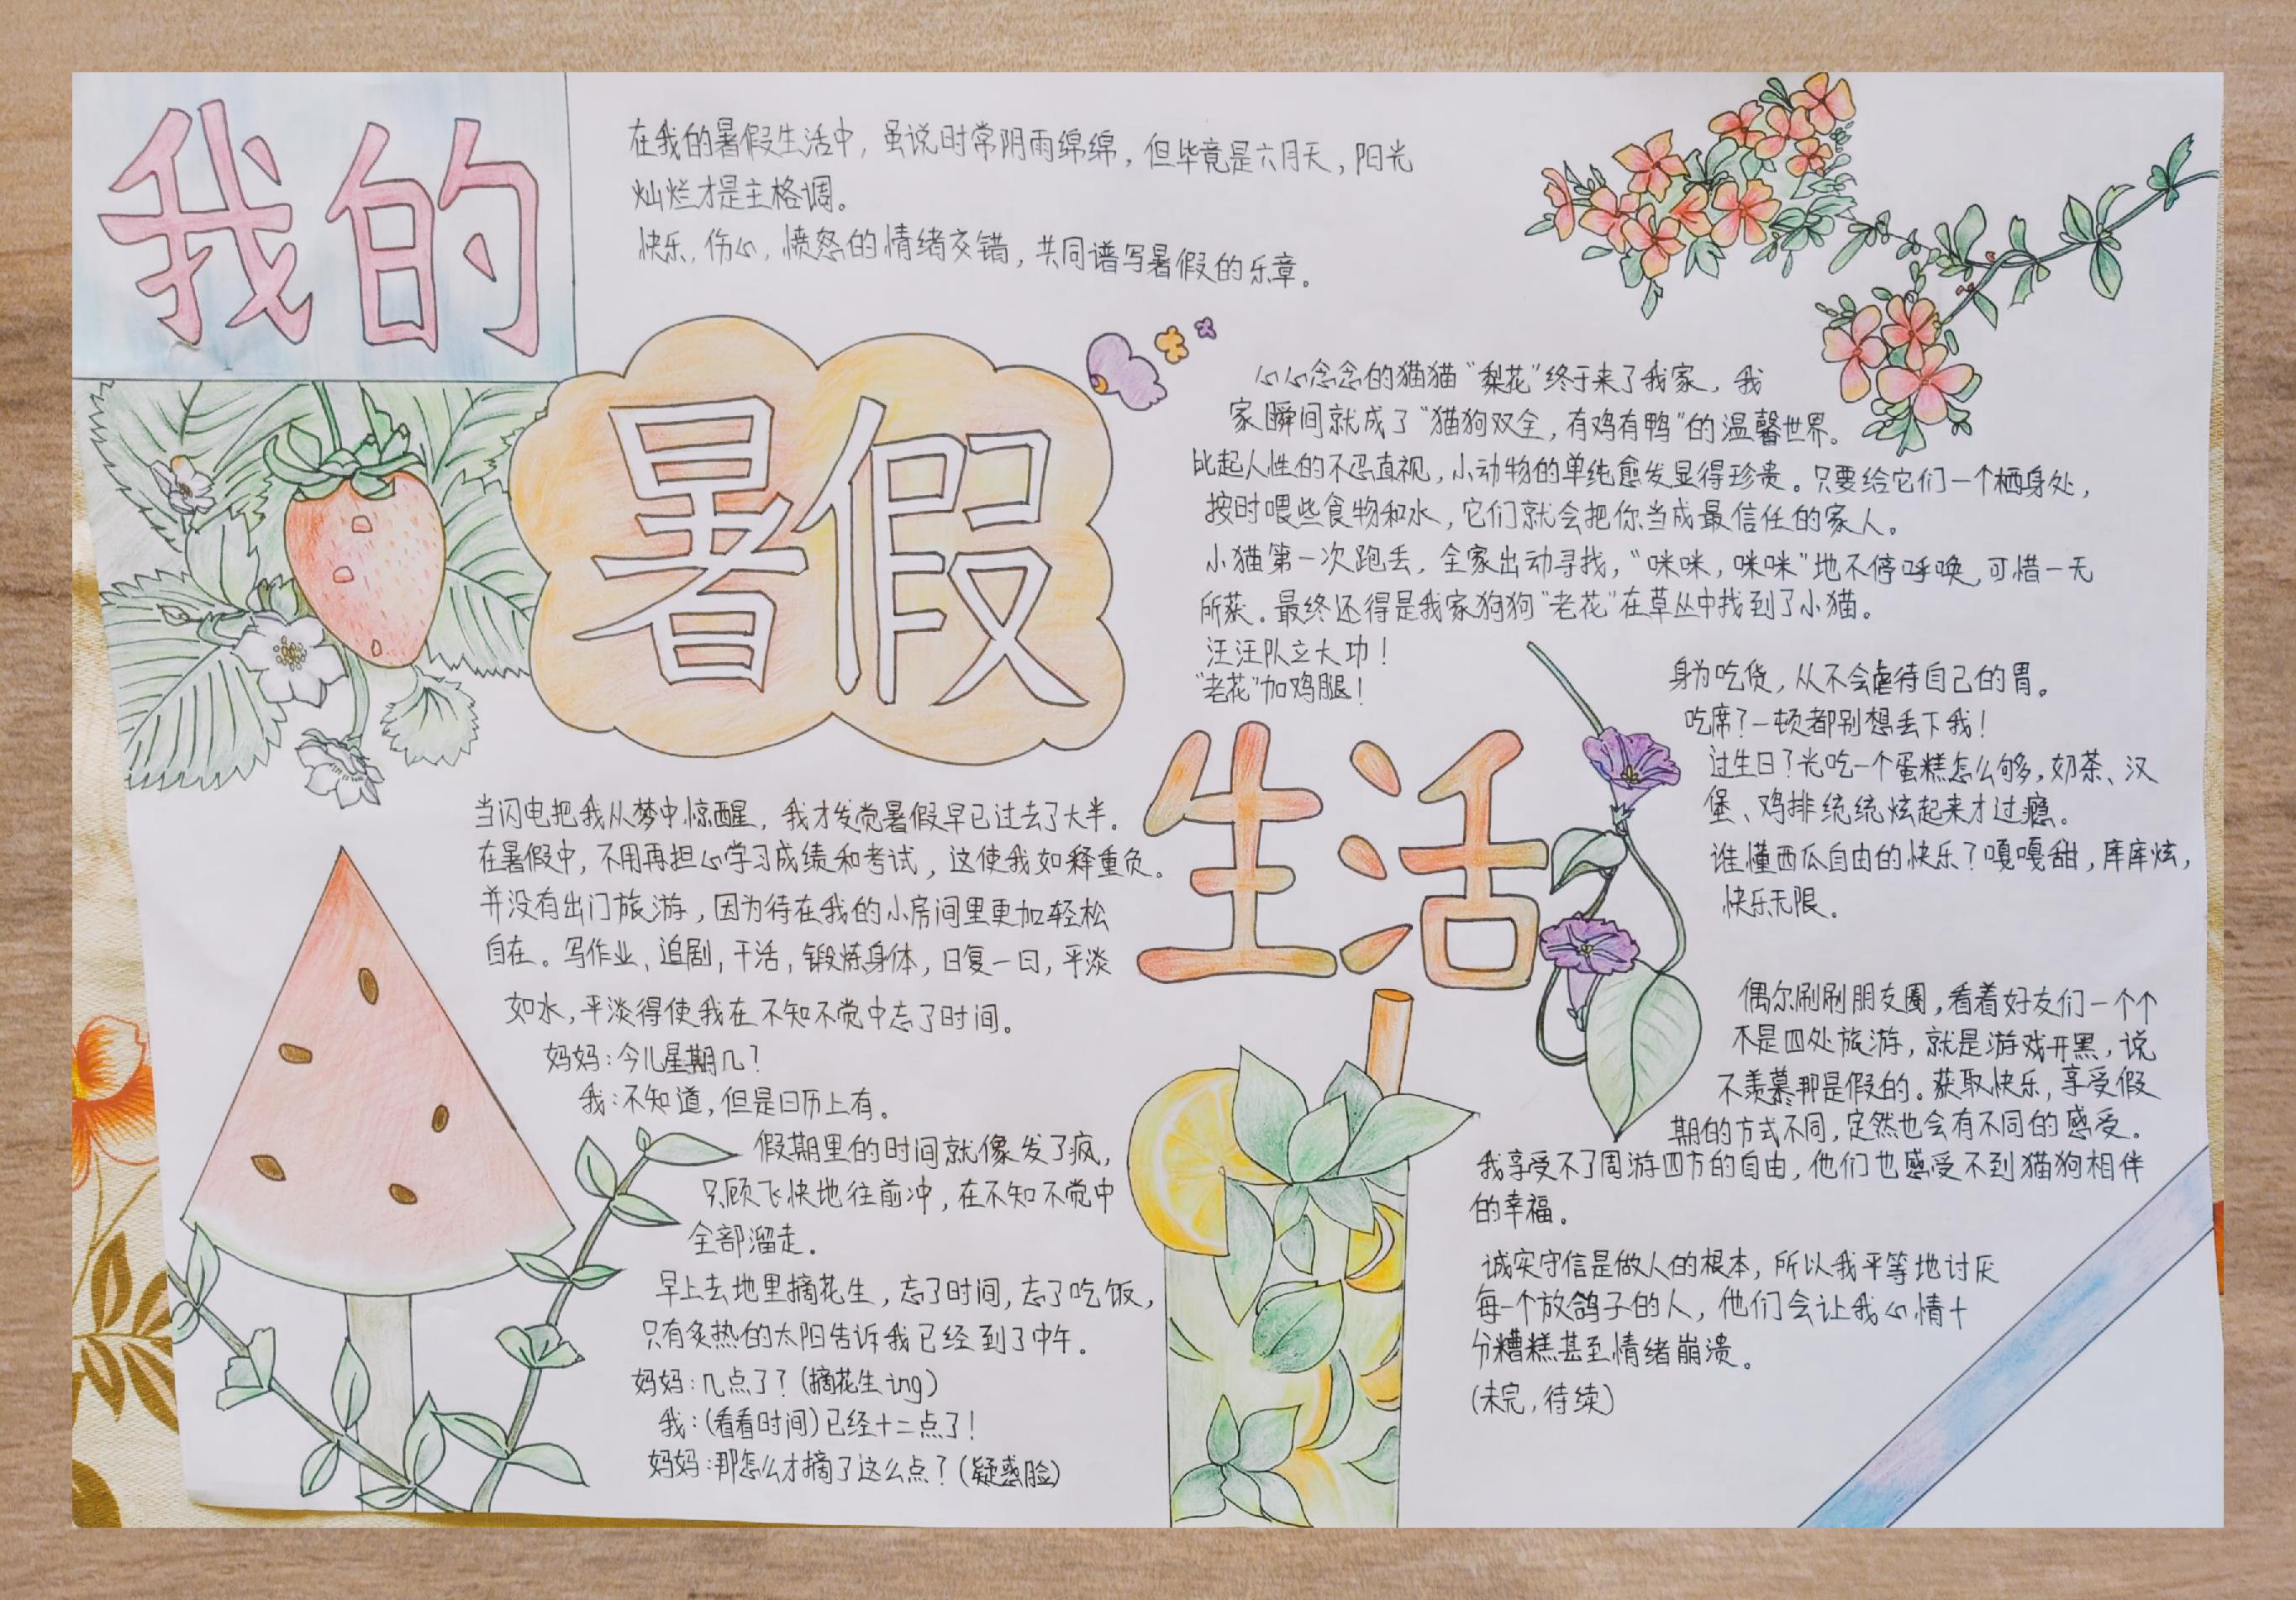 我的
暑假
生活
在我的暑假生活中，虽说时常阴雨绵绵，但毕竟是六月天，阳光
灿烂才是主格调。
快乐，伤心，愤怒的情绪交错，共同谱写暑假的乐章。
心心念念的猫猫“梨花”终于来了我家，我
家瞬间就成了“猫狗双全，有鸡有鸭”的温馨世界。
比起人性的不忍直视，小动物的单纯愈发显得珍贵。只要给它们一个栖身处，
按时喂些食物和水，它们就会把你当成最信任的家人。
小猫第一次跑丢，全家出动寻找，“咪咪，咪咪”地不停呼唤，可惜一无
所获。最终还得是我家狗狗“老花”在草丛中找到了小猫。
汪汪队立大功！
“老花”加鸡腿！
当闪电把我从梦中惊醒，我才发觉暑假早已过去了大半。
在暑假中，不用再担心学习成绩和考试，这使我如释重负。
并没有出门旅游，因为待在我的小房间里更加轻松
自在。写作业、追剧，干活，锻炼身体，日复一日，平淡
如水，平淡得使我在不知不觉中忘了时间。
妈妈：今儿星期几？
我：不知道，但是日历上有。
假期里的时间就像发了疯，
只顾飞快地往前冲，在不知不觉中
全部溜走。
早上去地里摘花生，忘了时间，忘了吃饭，
只有炙热的太阳告诉我已经到了中午。
妈妈：几点了？（摘花生ing）
我：（看看时间）已经十二点了！
妈妈：那怎么才摘了这么点？（疑惑脸）
身为吃货，从不会虐待自己的胃。
吃席？一顿都别想丢下我！
过生日？光吃一个蛋糕怎么够，奶茶、汉
堡、鸡排统统炫起来才过瘾。
谁懂西瓜自由的快乐？嘎嘎甜，库库炫，
快乐无限。
偶尔刷刷朋友圈，看着好友们一个个
不是四处旅游，就是游戏开黑，说
不羡慕那是假的。获取快乐，享受假
期的方式不同，定然也会有不同的感受。
我享受不了周游四方的自由，他们也感受不到猫狗相伴
的幸福。
诚实守信是做人的根本，所以我平等地讨厌
每一个放鸽子的人，他们会让我心情十
分糟糕甚至情绪崩溃。
（未完，待续）